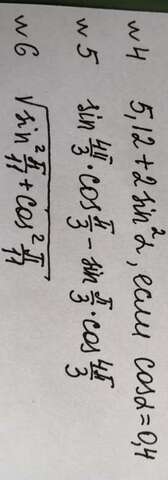 №4 5,12 + 2 sin²α, если cosα = 0,4
№5 sin 4π/3 · cos π/3 − sin π/3 · cos 4π/3
№6 √(sin² π/11 + cos² π/11)